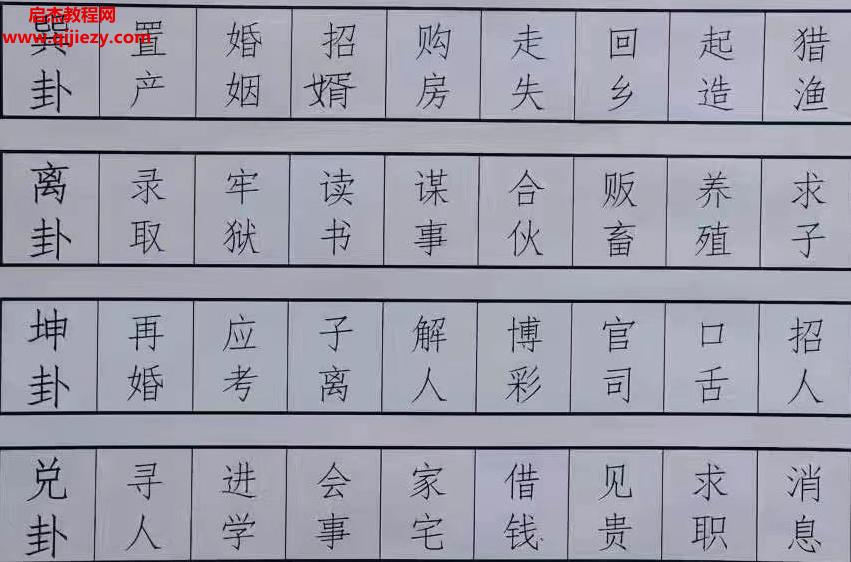 启杰教程网
www.qijiezy.com
巽卦 置产 婚姻 招婿 购房 走失 回乡 起造 猎渔
离卦 录取 牢狱 读书 谋事 合伙 贩畜 养殖 求子
坤卦 再婚 应考 子离 解人 博彩 官司 口舌 招人
兑卦 寻人 进学 会事 家宅 借钱 见贵 求职 消息